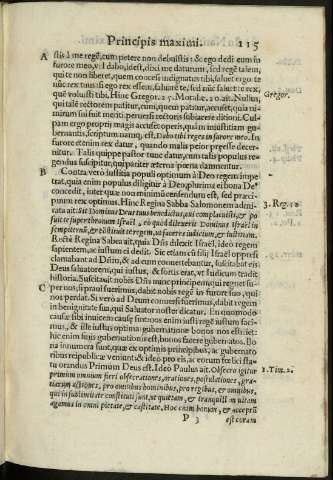 Principis maximi. 115
A stis à me rege, cum petere non debuistis: & ego dedi eum in
furore meo, id est, dixi me daturum, sed regē talem,
qui te non liberet, quem concess indignatus tibi, saluet ergo te
nūc rex tuus
quē voluisti tibi. Hinc Gregor. 25. Moral. 20. ait. Nullus,
qui talē rectorem patitur, eum, quem patitur, accuset, quia ni-
mirum sui fuit meriti peruersi rectoris subiacere ditioni. Cul-
pam ergo proprij magis accuset operis, quàm iniustitiam gu-
bernantis, scriptum namq; est. Dabo tibi regem in furore meo. In
furore etenim rex datur, quando malis peior præesse decer-
nitur. Talis quippe pastor tunc datur, cum talis populus rex-
gendus suscipitur, qui pariter æterna pœna damnentur.
Gregor.
B Contra verò iustitia populi optimum à Deo regem impe-
trat, quia enim populus diligitur à Deo
concedit, inter quæ non minimū censendum est, sed præci-
puum rex optimus. Hinc Regina Sabba Salomonem admi-
rata ait. Sit Dominus Deus tuus benedictus, qui complacuisti, & po-
suit te super thronum Israel, eo quod dilexerit Dominus Israel in
sempiternū, & constituit te regem, vt faceres iudicium, & iustitiam.
3. Reg. 10
Rectè Regina Saba ait, quia Dñs dilexit Israel, ideo regem
sapientem, ac iustum ei dedit. Sic etiam cū filij Israel oppressi
clamabant ad Dñm, & ad eum conuertebantur, suscitabat eis
Deus saluatorem, qui iustus, & fortis erat, vt Iudicum tradit
historia. Suscitauit nobis Dñs nunc principem, qui regnet su-
C per nos, si praui fuerimus, dabit nobis regē in furore suo, qui
nos perdat. Si verò ad Deum conuersi fuerimus, dabit regem
in benignitate sua, qui Saluator noster dicatur. En quomodo
causæ sibi inuicem causæ sint, nos enim iusti regē iustum faci-
mus, & ille iustus optima gubernatione bonos nos esse fa-
hic enim finis gubernationis est, bonos facere gubernatos. Bo
na innumera sunt, quæ ex optimis principibus, ac gubernato
ribus reipublicæ veniunt & ideo pro eis, ac eorum fœlici sta-
tu orandus Primum Deus est. Ideo Paulus ait. Obsecro igitur
primum omnium fieri obsecrationes, orationes, postulationes, gra-
tiarum actiones, pro omnibus hominibus, pro regibus, & omnibus,
qui in sublimitate constituti sunt, vt quietam, & tranquillā vitam
agamus in omni pietate, & castitate. Hoc enim bonum, & acceptū
1. Tim. 2.
P 3 est coram